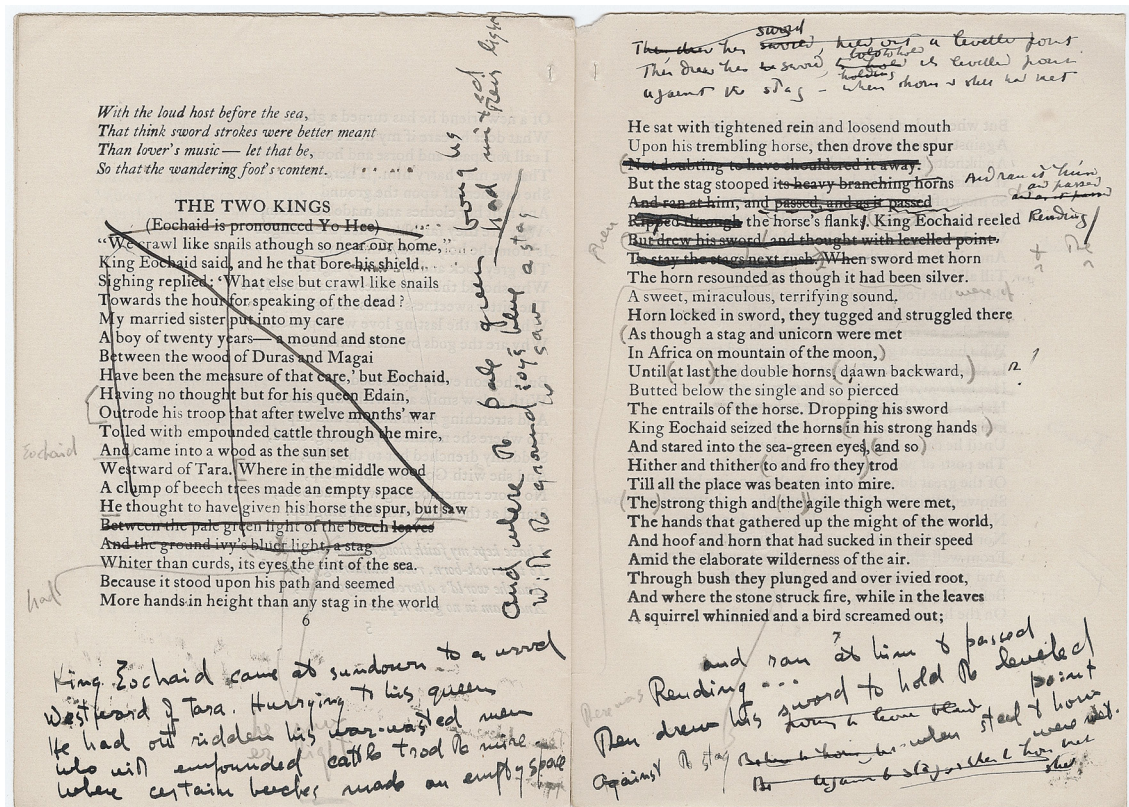 With the loud host before the sea,
That think sword strokes were better meant
Than lover's music — let that be,
So that the wandering foot's content.
THE TWO KINGS
(Eochaid is pronounced Yo Hee)
"We crawl like snails athough so near our home,"
King Eochaid said, and he that bore his shield,
Sighing replied: 'What else but crawl like snails
Towards the hour for speaking of the dead?
My married sister put into my care
A boy of twenty years— a mound and stone
Between the wood of Duras and Magai
Have been the measure of that care,' but Eochaid,
Having no thought but for his queen Edain,
Outrode his troop that after twelve months' war
Toiled with empounded cattle through the mire,
And came into a wood as the sun set
Westward of Tara. Where in the middle wood
A clump of beech trees made an empty space
He thought to have given his horse the spur, but saw
Between the pale green light of the beech leaves
And the ground ivy's bluer light, a stag
Whiter than curds, its eyes the tint of the sea.
Because it stood upon his path and seemed
More hands in height than any stag in the world
6
Eochaid
had
And where the pale green
With the ground ivys blue
saw a stag
King Eochaid came at sundown to a wood
Westward of Tara. Hurrying to his queen
He had out ridden his war-wasted men
who with empounded cattle trod the mire
where certain beeches made an empty space
sword
Then drew his sword to hold its levelled point
against the stag - when
He sat with tightened rein and loosend mouth
Upon his trembling horse, then drove the spur
Not doubting to have shouldered it away.
But the stag stooped its heavy branching horns
And ran at him, and passed, and as it passed
Ripped through the horse's flank. King Eochaid reeled
But drew his sword and thought with levelled point
To stay the stags next rush. When sword met horn
The horn resounded as though it had been silver.
A sweet, miraculous, terrifying sound.
Horn locked in sword, they tugged and struggled there
(As though a stag and unicorn were met
In Africa on mountain of the moon,)
Until (at last) the double horns, (drawn backward,)
Butted below the single and so pierced
The entrails of the horse. Dropping his sword
King Eochaid seized the horns (in his strong hands)
And stared into the sea-green eyes, (and so)
Hither and thither (to and fro they) trod
Till all the place was beaten into mire.
(The) strong thigh and (the) agile thigh were met,
The hands that gathered up the might of the world,
And hoof and horn that had sucked in their speed
Amid the elaborate wilderness of the air.
Through bush they plunged and over ivied root,
And where the stone struck fire, while in the leaves
A squirrel whinnied and a bird screamed out;
And ran at him
and passed
Rending
Then
and ran at him & passed
Rending . . .
Then drew his sword to hold its levelled
point
Against the stag when steel & horn
were met.